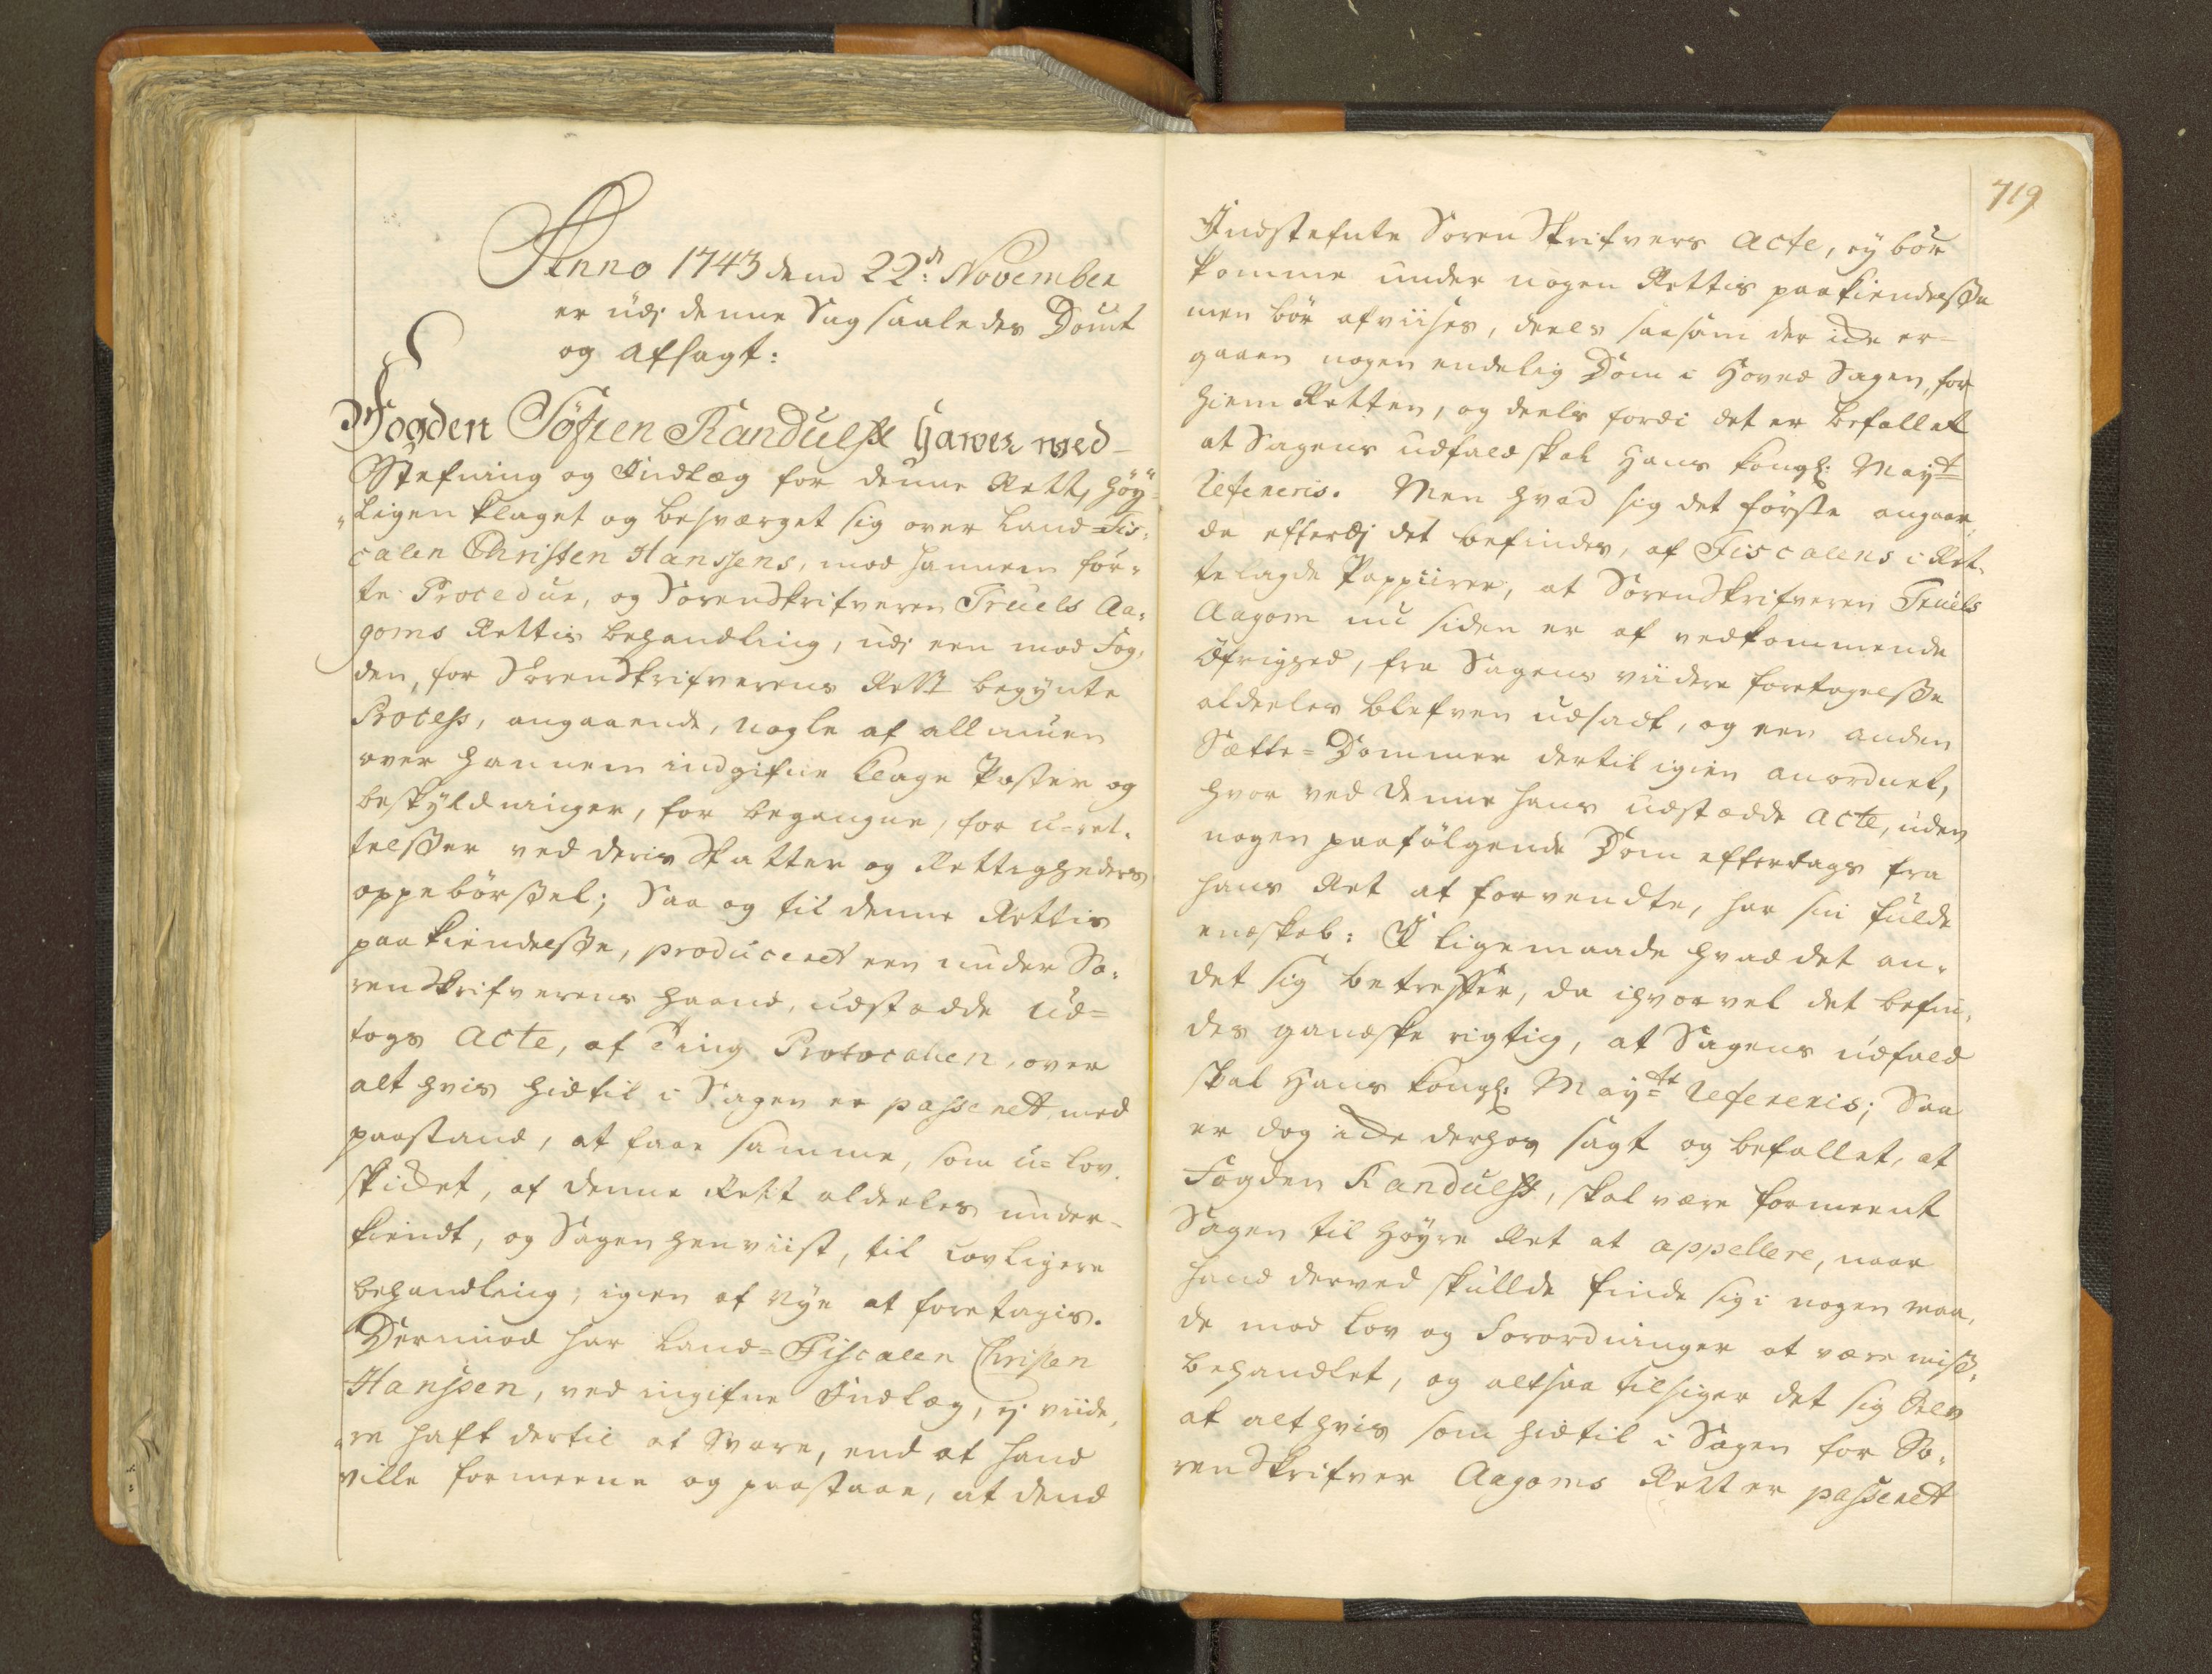 Anno 1743 dend 22:de November
er udj denne Sag saaledes Dömt
og afsagt:
Fogden Söfren Randulff hawer med
Stefning og Indlæg for denne Rett, höÿ=
ligen klaget og besværget sig over Land-Fis:
calen Christen Hanssens, mod hannem för:
te Procedur, og Sorenskrifveren Truels Aa:
goms Rettis behandling, udj een mod Fog:
den, for Sorenskrifverens Rett begÿnte
Process, angaaende, nogle af allmuen
over hannem indgifne klage Poster og
beskÿldninger, for begangne, for u-ret:
telsser ved deris Skatter og Rettigheders
oppebörssel; Saa og til denne Rettis
paakiendelsse, produceret een under So:
renskrifverens haand, udstædde ud=
togs Acte, af Ting Protocollen, over
alt hvis hidtil i Sagen er passeret med
paastand, at faae samme, som u-lov
skicket, af denne Rett aldeeles under=
kiendt, og Sagen henviist, til lovligere
behandling, igien af nÿe at foretagis.
Dermod har Land-Fiscalen Christen
Hanssen, ved ingifne Indlæg, ej viide,
re haft dertil at svare, end at hand
ville formeene og paastaae, at dend
719
Indstefnte Sorenskrifvers Acte, eÿ bör
komme under nogen Rettis paakiendelsse
men bör afviises, deels saasom der icke er=
gaaen nogen endelig Dom i Hoved Sagen, for
hiem Retten, og deels fordi det er befallet
at Sagens udfald skal Hans Kongl: Maÿt
refereris. Men hvad sig det förste angaar,
da efterdj det befindes, af Fiscalens i Ret-
telagde Pappiirer, at Sorenskrifveren Truels
Aagom nu siden er af vedkommende
Öfrighed, fra Sagens viidere foretagelsse
aldeeles blefven udsadt, og een anden
Sætte-Dommer dertil igien anordnet,
hvor ved denne hans udstædde Acte, uden
nogen paafölgende Dom efterdags fra
hans Ret at forvendte, har sin fulde
endskab: I ligemaade hvad det an:
det sig betreffer, da ihvorvel det befin,
des gandske rigtig, at Sagens udfald
skal Hans Kongl: Maÿtt refereris; Saa
er dog icke derhos sagt og befallet, at
Fogden Randulff, skal være formeent
Sagen til höÿre Ret at appellere, naar
hand derved skullde finde sig i nogen maa,
de mod Lov og Forordninger at være miss,
behandlet, og altsaa tilsiger det sig Selv
at alt hvis som hidtil i Sagen for So:
renskrifver Aagoms Rett er passeret